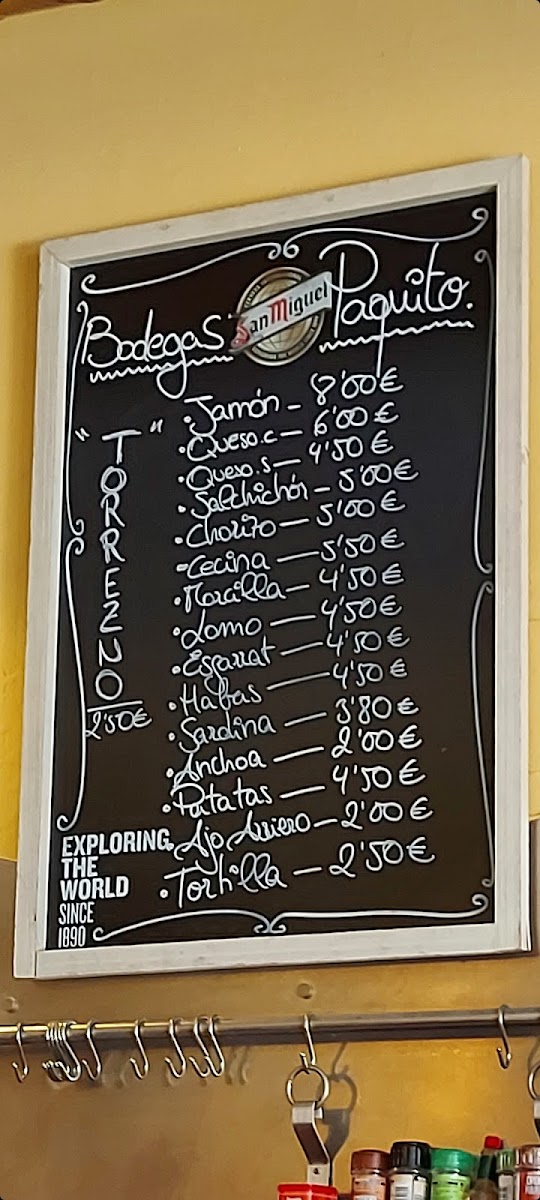 Bodegas San Miguel Paquito.
"TORREZNO"
2'50€
·Jamón - 8'00€
·Queso.c - 6'00€
·Queso.s - 4'50€
·Salchichón - 5'00€
·Chorizo - 5'00€
·Cecina - 5'50€
·Morcilla - 4'50€
·Lomo - 4'50€
·Esgarrat - 4'50€
·Habas - 4'50€
·Sardina - 3'80€
·Anchoa - 2'00€
·Patatas - 4'50€
·Ajo Arriero - 2'00€
·Tortilla - 2'50€
EXPLORING
THE
WORLD
SINCE
1890